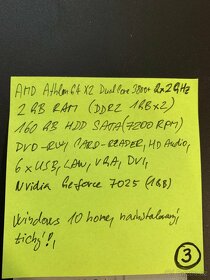 AMD Athlon 64 X2 Dual Core 3800+ 2x2GHz
2 GB RAM (DDR2 1GBx2)
160 GB HDD SATA (7200 RPM)
DVD-RW, CARD-READER, HD Audio,
6x USB, LAN, VGA, DVI,
Nvidia GeForce 7025 (1GB)
Windows 10 home, nainštalovaný
tichý!
3